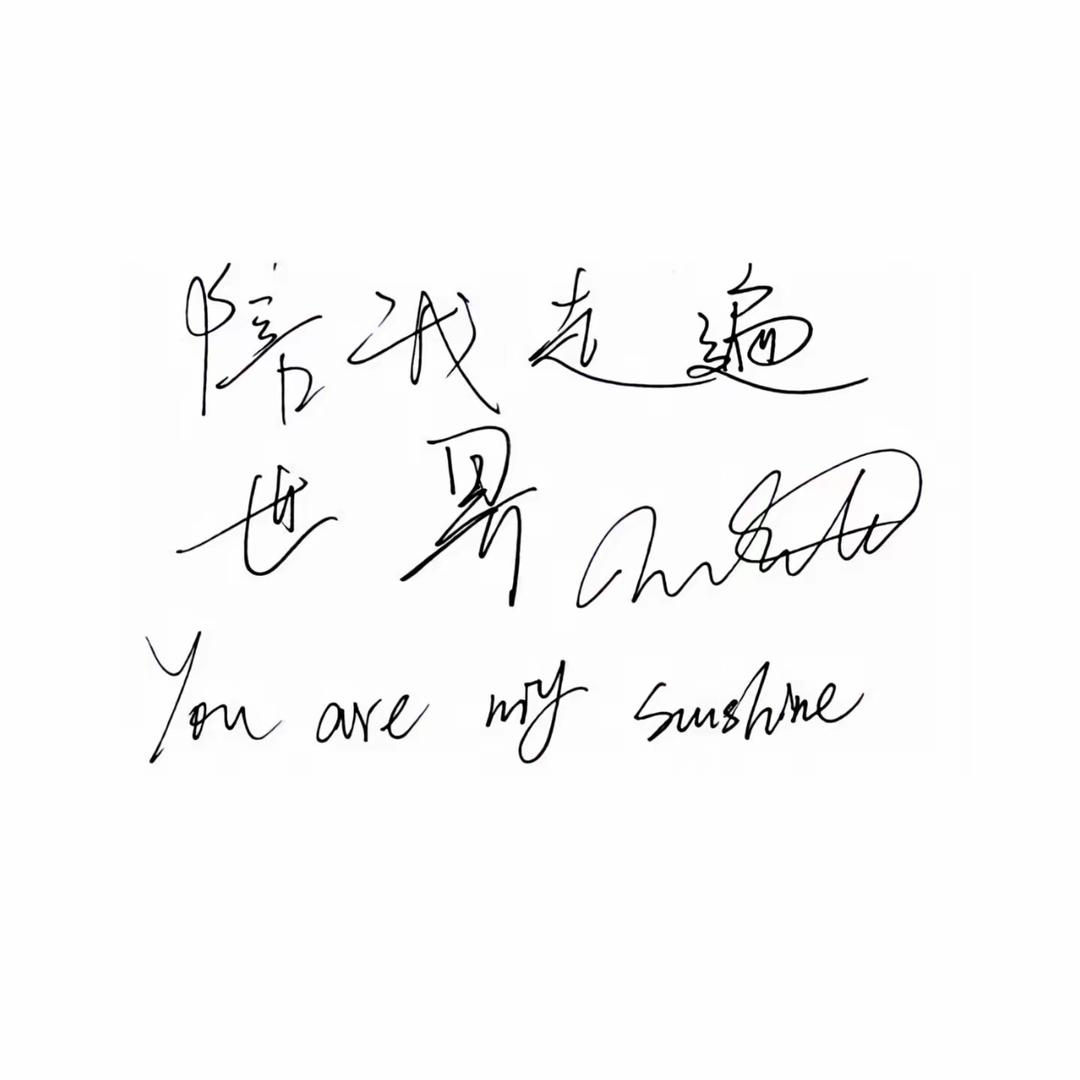 陪我走遍
世界
You are my sunshine